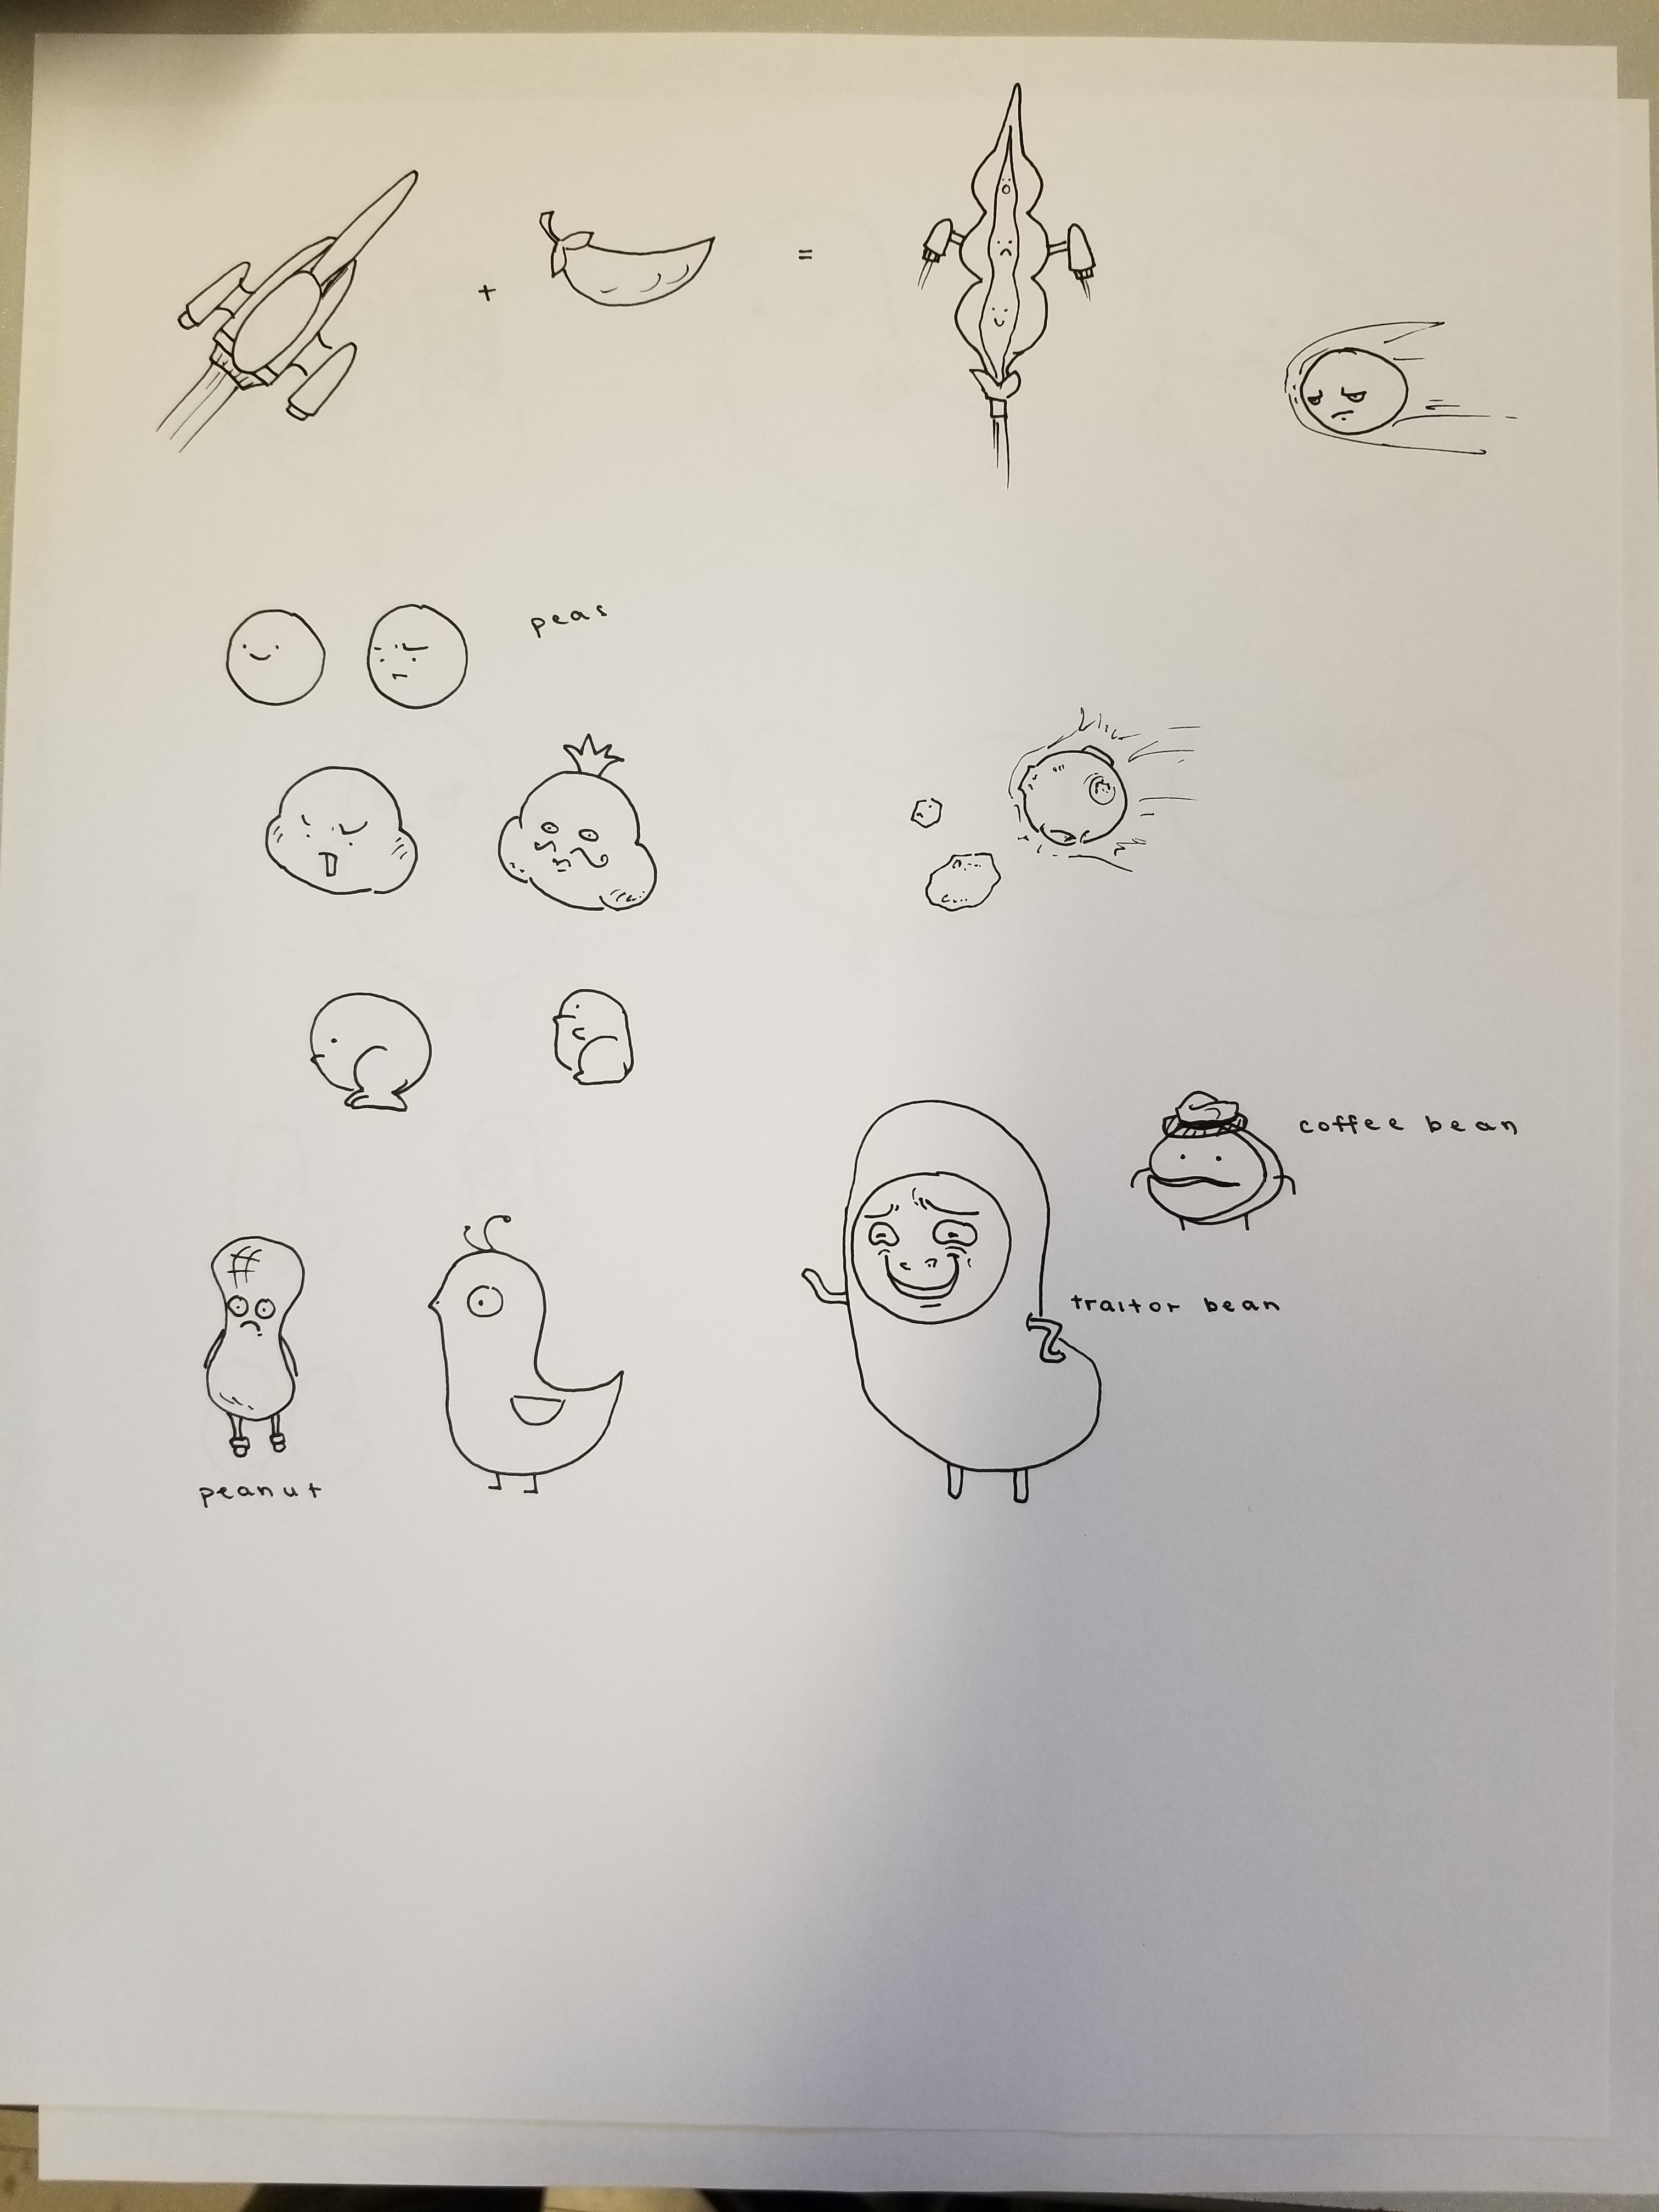 + =
peas
coffee bean
traitor bean
peanut